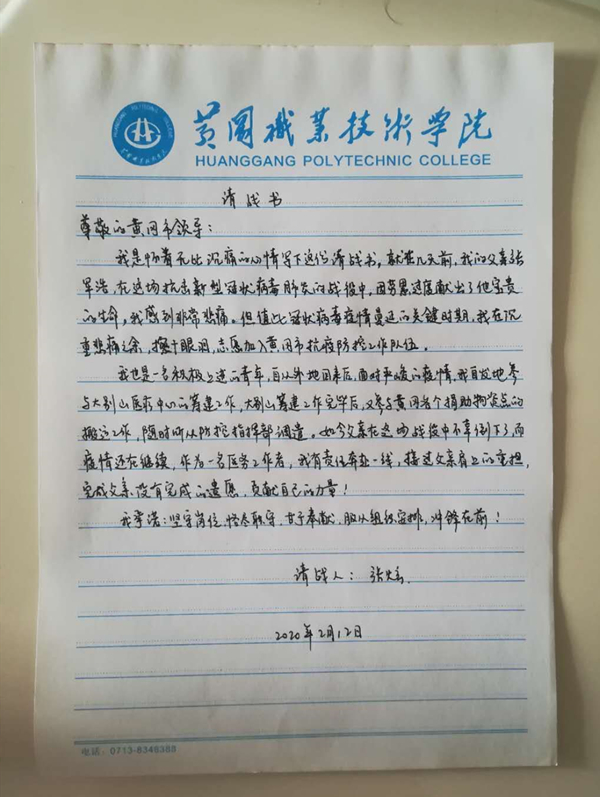 黄冈职业技术学院
HUANGGANG POLYTECHNIC COLLEGE
请战书
尊敬的黄冈市领导：
我是怀着无比沉痛的心情写下这份请战书。就在几天前，我的父亲张
军浩，在这场抗击新型冠状病毒肺炎的战役中，因劳累过度献出了他宝贵
的生命，我感到非常悲痛。但值此冠状病毒疫情蔓延的关键时期，我在沉
重悲痛之余，擦干眼泪，志愿加入黄冈市抗疫防控工作队伍。
我也是一名积极上进的青年，自从外地回来后，面对严峻的疫情，我自发地参
与大别山医疗中心的筹建工作，大别山筹建工作完毕后，又参与黄冈各个捐助物资点的
搬运工作，随时听从防控指挥部调遣。如今父亲在这场战役中不幸倒下了，而
疫情还在继续，作为一名医务工作者，我有责任奔赴一线，接过父亲肩上的重担，
完成父亲没有完成的遗愿，贡献自己的力量！
我承诺：坚守岗位，恪尽职守，甘于奉献，服从组织安排，冲锋在前！
请战人：张
2020年2月12日
电话：0713-8348388